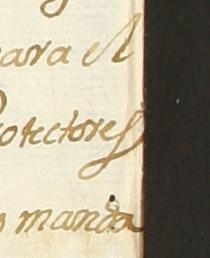 para el
rotectores
manda